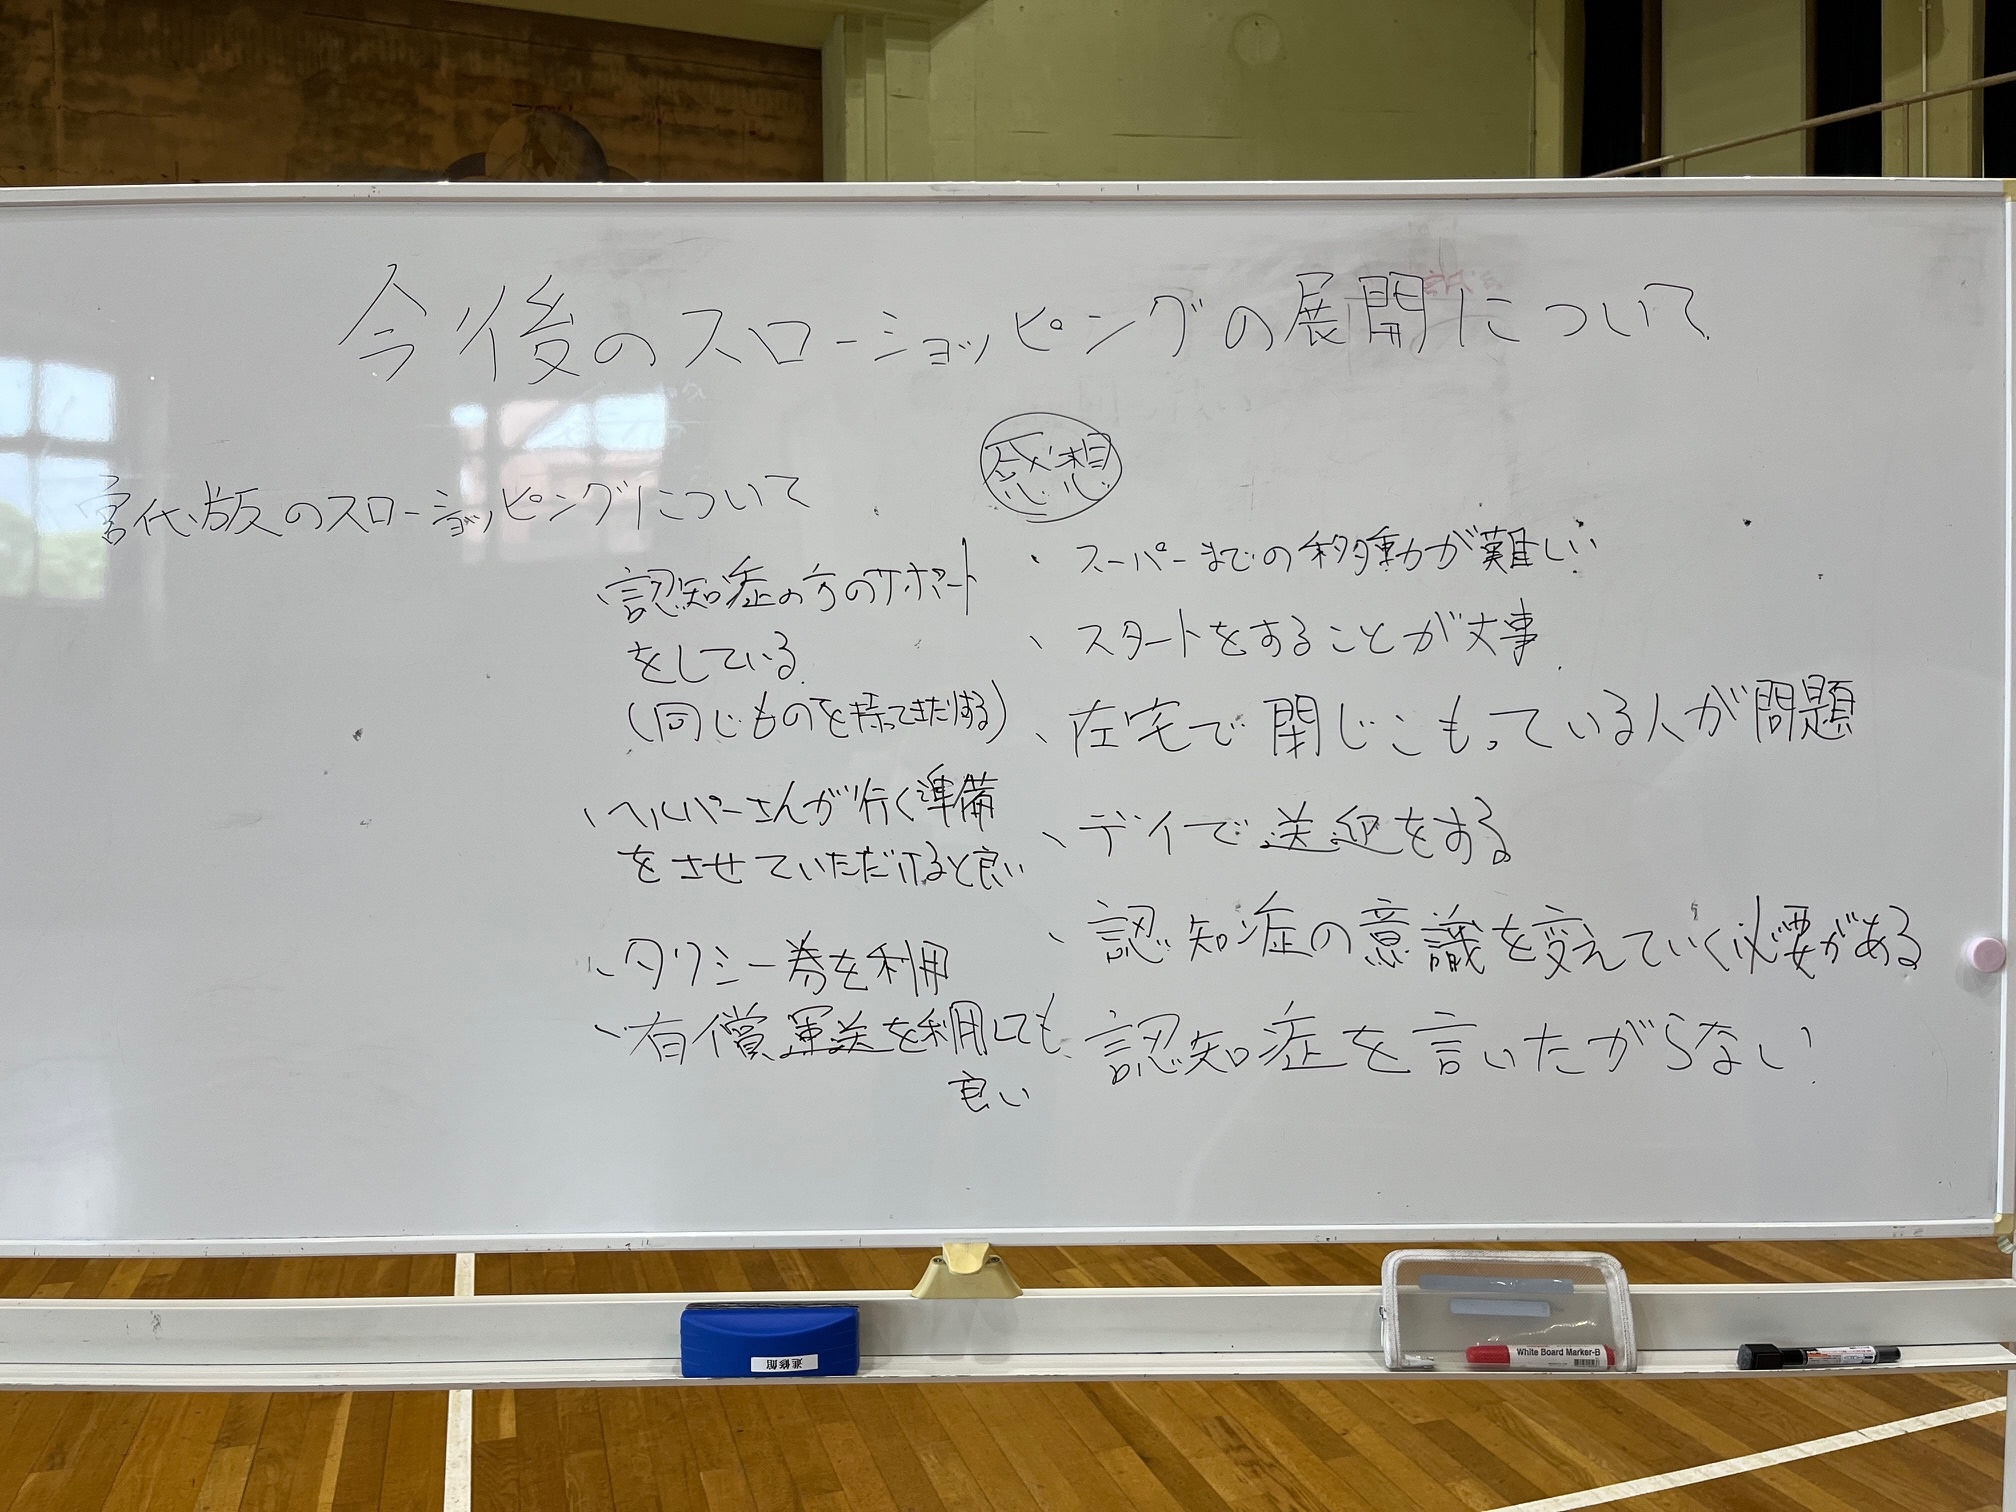 今後のスローショッピングの展開について
宮代版のスローショッピングについて
感想
、認知症の方のサポート
をしている
(同じものを持ってきたりする)
、ヘルパーさんが行く準備
をさせていただけると良い
、タクシー券を利用
、有償運送を利用しても
良い
、スーパーまでの移動が難しい
、スタートをすることが大事
、在宅で閉じこもっている人が問題
、デイで送迎をする
、認知症の意識を変えていく必要がある
、認知症を言いたがらない
進修館
White Board Marker-B